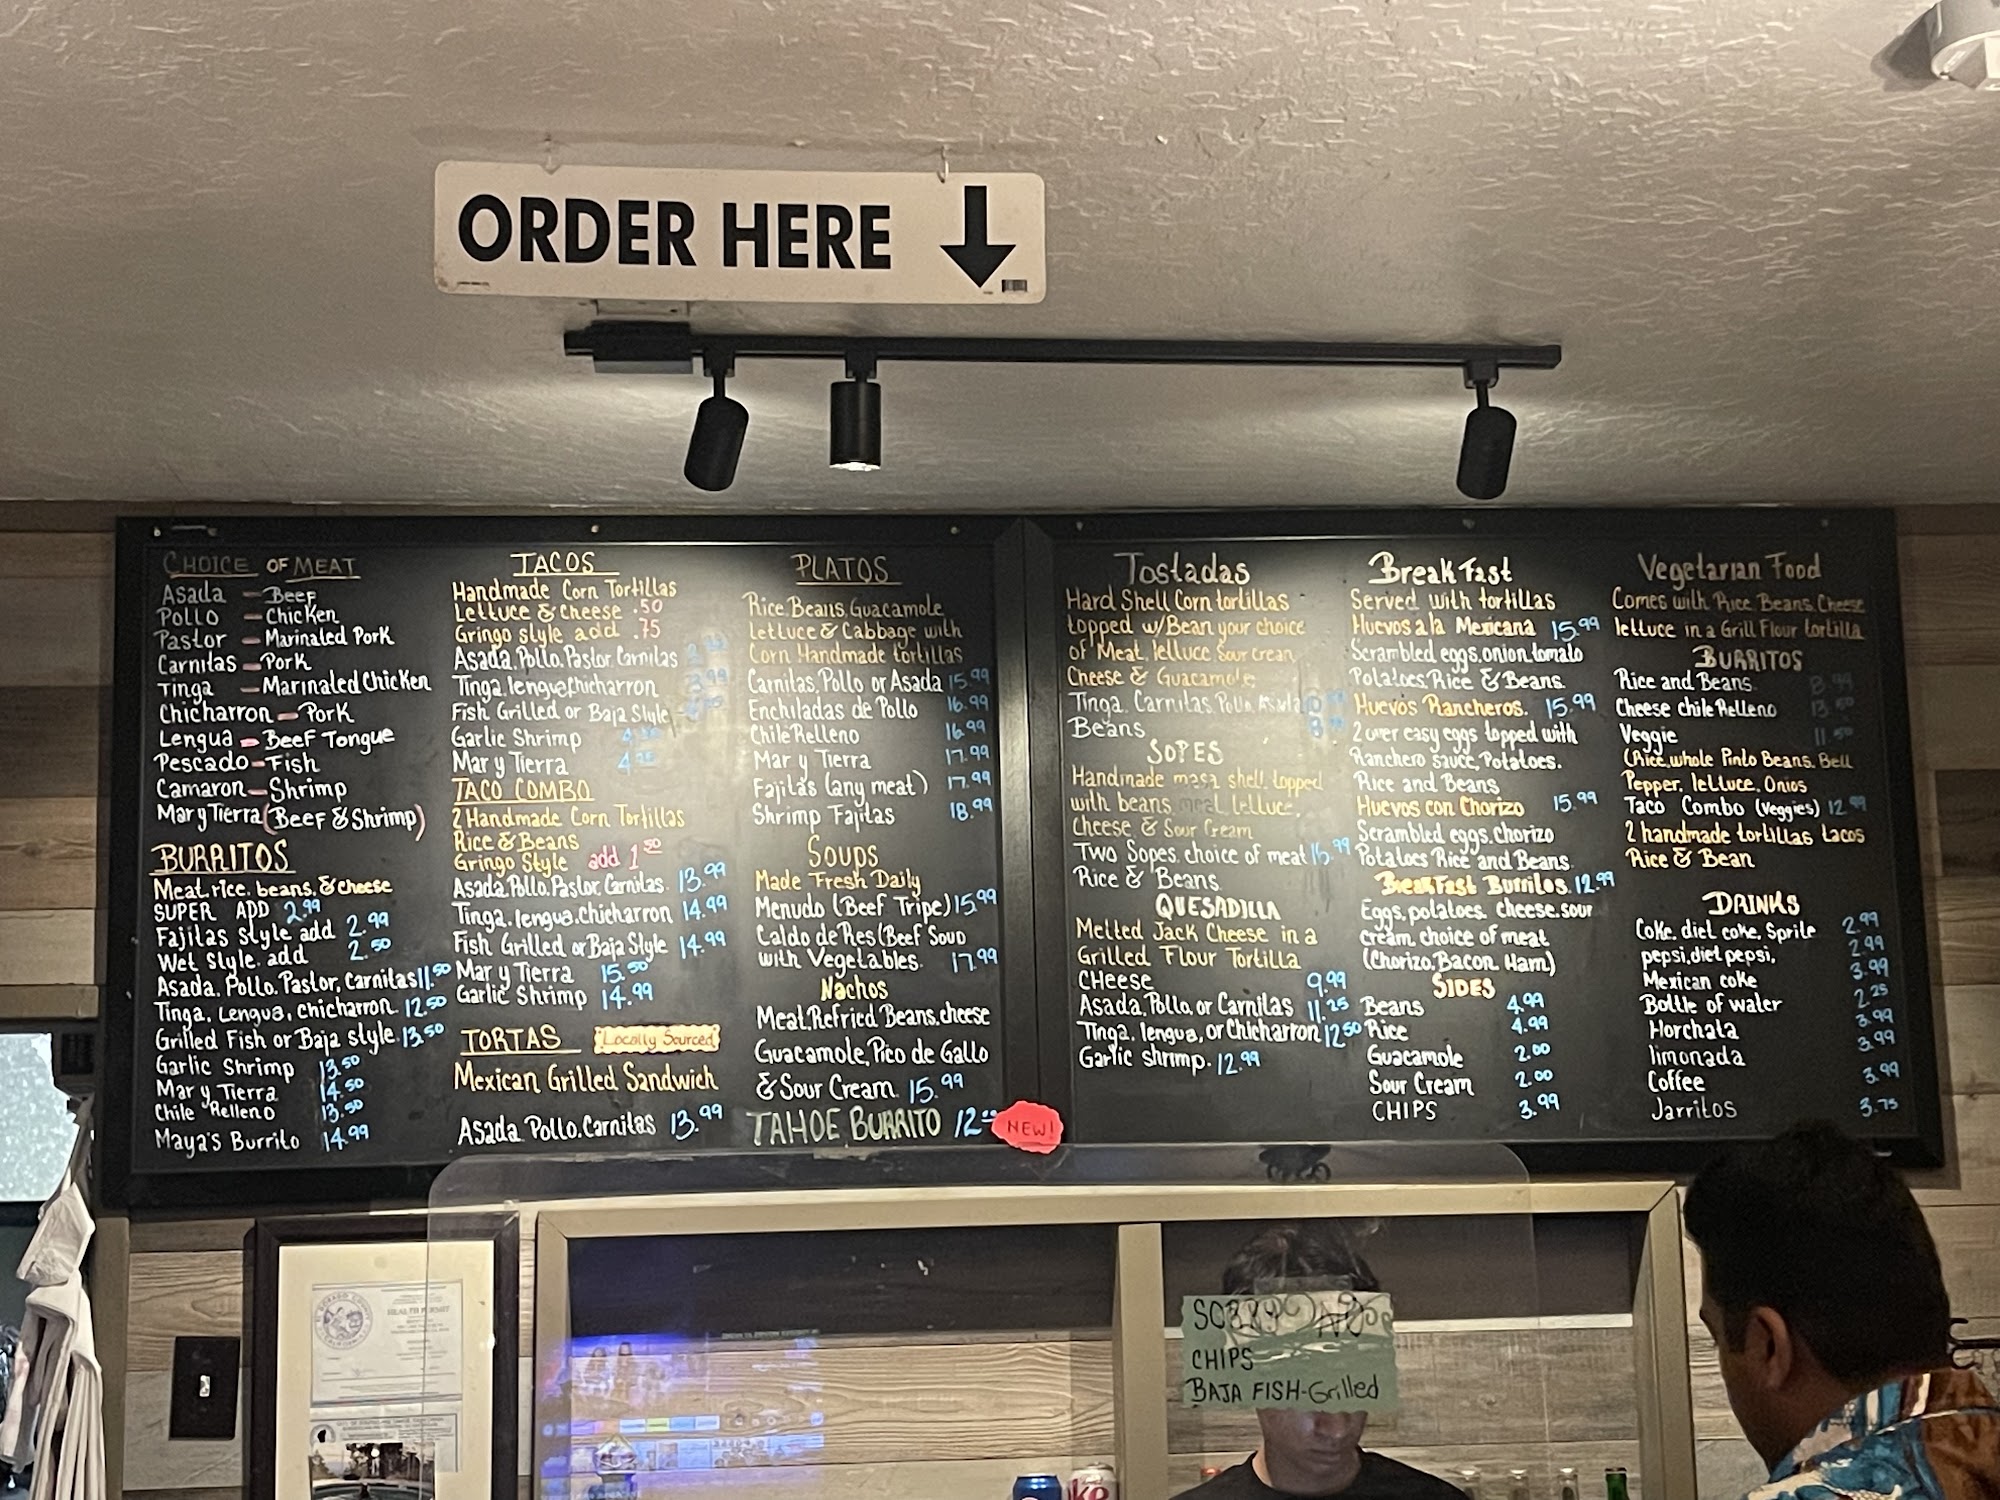 ORDER HERE
CHOICE OF MEAT
Asada - Beef
Pollo - Chicken
Pastor - Marinated Pork
Carnitas - Pork
Tinga - Marinated Chicken
Chicharron - Pork
Lengua - Beef Tongue
Pescado - Fish
Camaron - Shrimp
Mar y Tierra (Beef & Shrimp)
BURRITOS
Meat, rice, beans, & cheese
SUPER ADD 2.99
Fajitas style add 2.99
Wet style add 2.50
Asada, Pollo, Pastor, Carnitas 11.50
Tinga, Lengua, chicharron 12.50
Grilled Fish or Baja style 13.50
Garlic Shrimp 13.50
Mar y Tierra 14.50
Chile Relleno 13.50
Maya's Burrito 14.99
TACOS
Handmade Corn Tortillas
Lettuce & Cheese .50
Gringo style add .75
Asada, Pollo, Pastor, Carnitas
Tinga, lengua, chicharron
Fish Grilled or Baja Style
Garlic Shrimp
Mar y Tierra
TACO COMBO
2 Handmade Corn Tortillas
Rice & Beans
Gringo Style add 1.50
Asada, Pollo, Pastor, Carnitas 13.99
Tinga, lengua, chicharron 14.99
Fish Grilled or Baja Style 14.99
Mar y Tierra 15.50
Garlic Shrimp 14.99
TORTAS Locally Sourced
Mexican Grilled Sandwich
Asada, Pollo, Carnitas 13.99
PLATOS
Rice, Beans, Guacamole,
Lettuce & Cabbage with
Corn Handmade tortillas
Carnitas, Pollo or Asada 15.99
Enchiladas de Pollo 16.99
Chile Relleno 16.99
Mar y Tierra 17.99
Fajitas (any meat) 17.99
Shrimp Fajitas 18.99
SOUPS
Made Fresh Daily
Menudo (Beef Tripe) 15.99
Caldo de Res (Beef Soup
with Vegetables. 17.99
Nachos
Meat, Refried Beans, cheese
Guacamole, Pico de Gallo
& Sour Cream 15.99
TAHOE BURRITO 12 NEW!
Tostadas
Hard Shell Corn tortillas
topped w/Bean your choice
of Meat, lettuce, sour cream,
Cheese & Guacamole.
Tinga, Carnitas, Pollo, Asada
Beans
SOPES
Handmade masa shell, topped
with beans meat lettuce,
Cheese & Sour Cream
Two Sopes, choice of meat 15.99
Rice & Beans
QUESADILLA
Melted Jack Cheese in a
Grilled Flour Tortilla
CHeese 9.99
Asada, Pollo, or Carnitas 11.25
Tinga, lengua, or Chicharron 12.50
Garlic shrimp. 12.99
BreakFast
Served with tortillas
Huevos a la Mexicana 15.99
Scrambled eggs, onion, tomato
Potatoes, Rice & Beans
Huevos Rancheros. 15.99
2 over easy eggs topped with
Ranchero sauce, Potatoes.
Rice and Beans
Huevos con Chorizo 15.99
Scrambled eggs, chorizo
Potatoes Rice and Beans
BreakFast Burritos 12.99
Eggs, potatoes, cheese, sour
cream, choice of meat
(Chorizo, Bacon, Ham)
SIDES
Beans 4.99
Rice 4.99
Guacamole 2.00
Sour Cream 2.00
CHIPS 3.99
Vegetarian Food
Comes with Rice, Beans, Cheese
lettuce in a Grill Flour tortilla
BURRITOS
Rice and Beans
Cheese chile Relleno
Veggie
(Rice, whole Pinto Beans, Bell
Pepper, lettuce, Onios
Taco Combo (Veggies) 12.99
2 handmade tortillas tacos
Rice & Bean
DRINKS
Coke, diet coke, Sprite 2.99
pepsi, diet pepsi, 2.99
Mexican coke 3.99
Bottle of water 2.25
Horchata 3.99
limonada 3.99
Coffee 3.99
Jarritos 3.75
SORRY NO
CHIPS
BAJA FISH-Grilled
HEALTH PERMIT